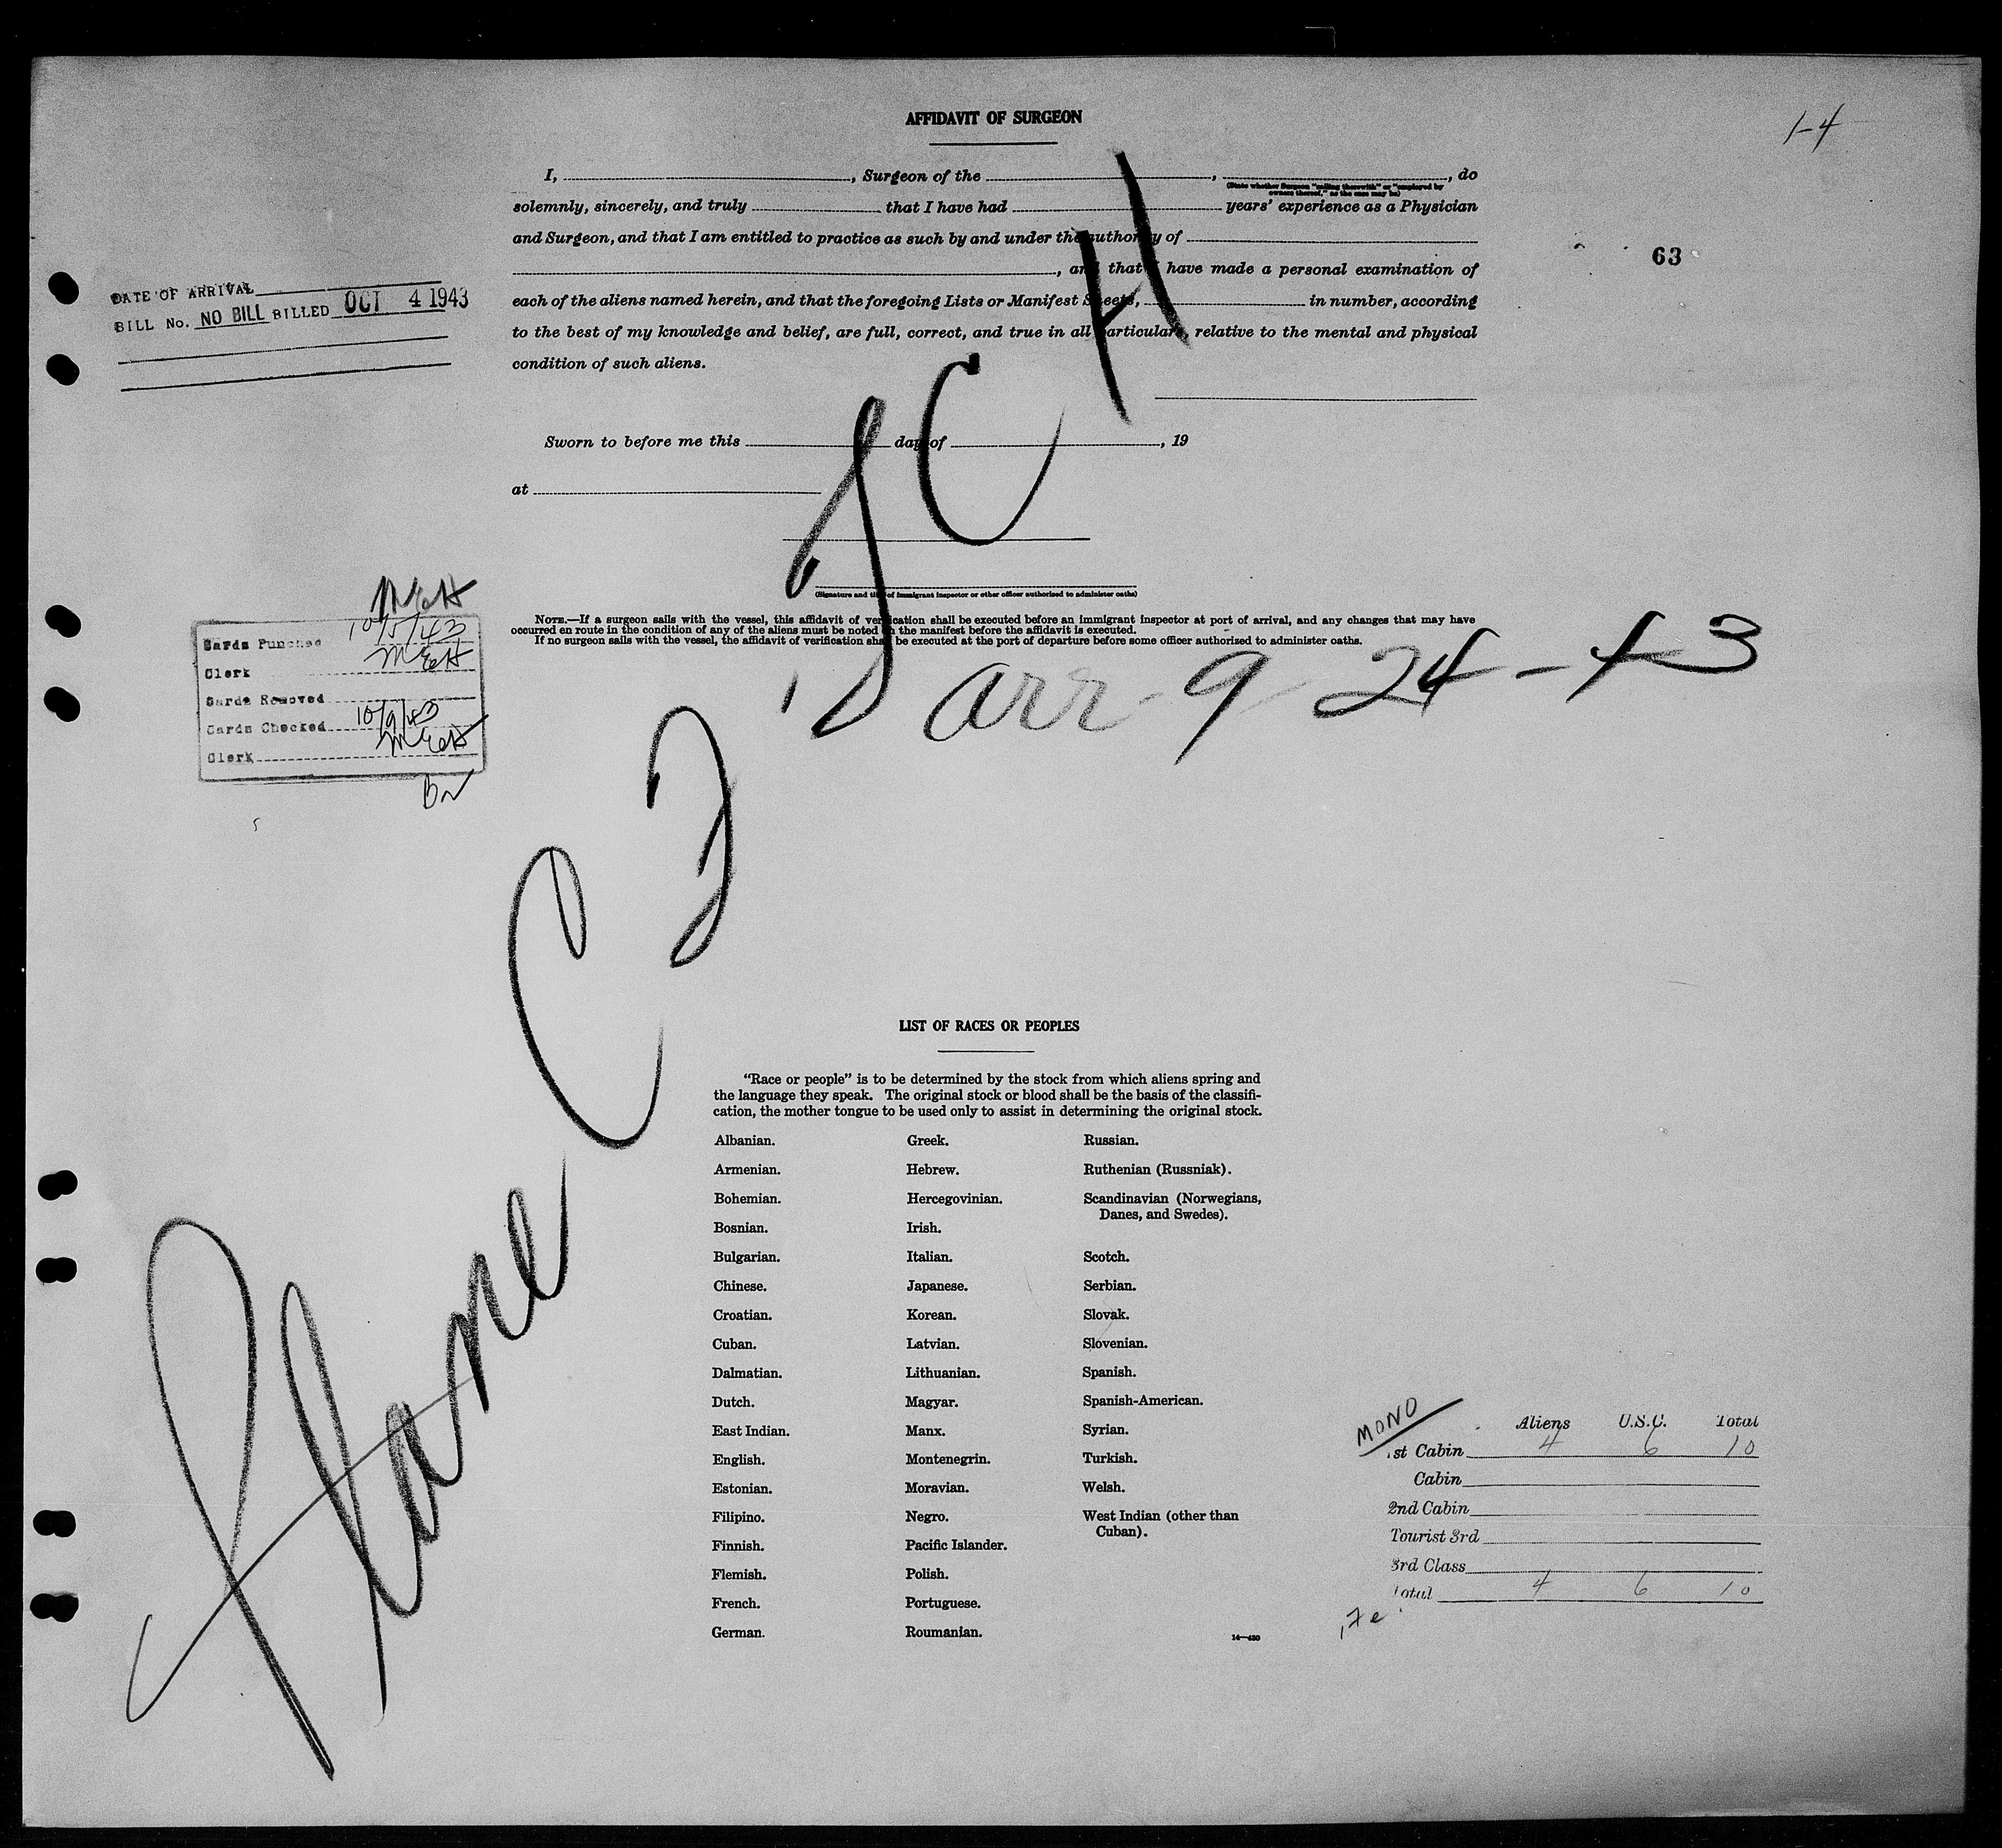 AFFIDAVIT OF SURGEON
1-4
I, , Surgeon of the , , do
(State whether Surgeon "sailing therewith" or "employed by
owners thereof," as the case may be)
solemnly, sincerely, and truly that I have had years' experience as a Physician
and Surgeon, and that I am entitled to practice as such by and under the authority of
, and that I have made a personal examination of
each of the aliens named herein, and that the foregoing Lists or Manifest Sheets, in number, according
to the best of my knowledge and belief, are full, correct, and true in all particulars, relative to the mental and physical
condition of such aliens.
63
DATE OF ARRIVAL
BILL No. NO BILL BILLED OCT 4 1943
Sworn to before me this day of , 19
at
(Signature and title of immigrant inspector or other officer authorized to administer oaths)
NOTE.—If a surgeon sails with the vessel, this affidavit of verification shall be executed before an immigrant inspector at port of arrival, and any changes that may have
occurred en route in the condition of any of the aliens must be noted on the manifest before the affidavit is executed.
If no surgeon sails with the vessel, the affidavit of verification shall be executed at the port of departure before some officer authorized to administer oaths.
Cards Punched 10/5/43
Clerk
Cards Removed
Cards Checked 10/9/43
Clerk
arr - 9 24 - 43
Plane C
CH
LIST OF RACES OR PEOPLES
"Race or people" is to be determined by the stock from which aliens spring and
the language they speak. The original stock or blood shall be the basis of the classifi-
cation, the mother tongue to be used only to assist in determining the original stock.
Albanian.
Armenian.
Bohemian.
Bosnian.
Bulgarian.
Chinese.
Croatian.
Cuban.
Dalmatian.
Dutch.
East Indian.
English.
Estonian.
Filipino.
Finnish.
Flemish.
French.
German.
Greek.
Hebrew.
Hercegovinian.
Irish.
Italian.
Japanese.
Korean.
Latvian.
Lithuanian.
Magyar.
Manx.
Montenegrin.
Moravian.
Negro.
Pacific Islander.
Polish.
Portuguese.
Roumanian.
Russian.
Ruthenian (Russniak).
Scandinavian (Norwegians,
Danes, and Swedes).
Scotch.
Serbian.
Slovak.
Slovenian.
Spanish.
Spanish-American.
Syrian.
Turkish.
Welsh.
West Indian (other than
Cuban).
14—430
MONO
Aliens U.S.C. Total
1st Cabin 4 6 10
Cabin
2nd Cabin
Tourist 3rd
3rd Class
Total 4 6 10